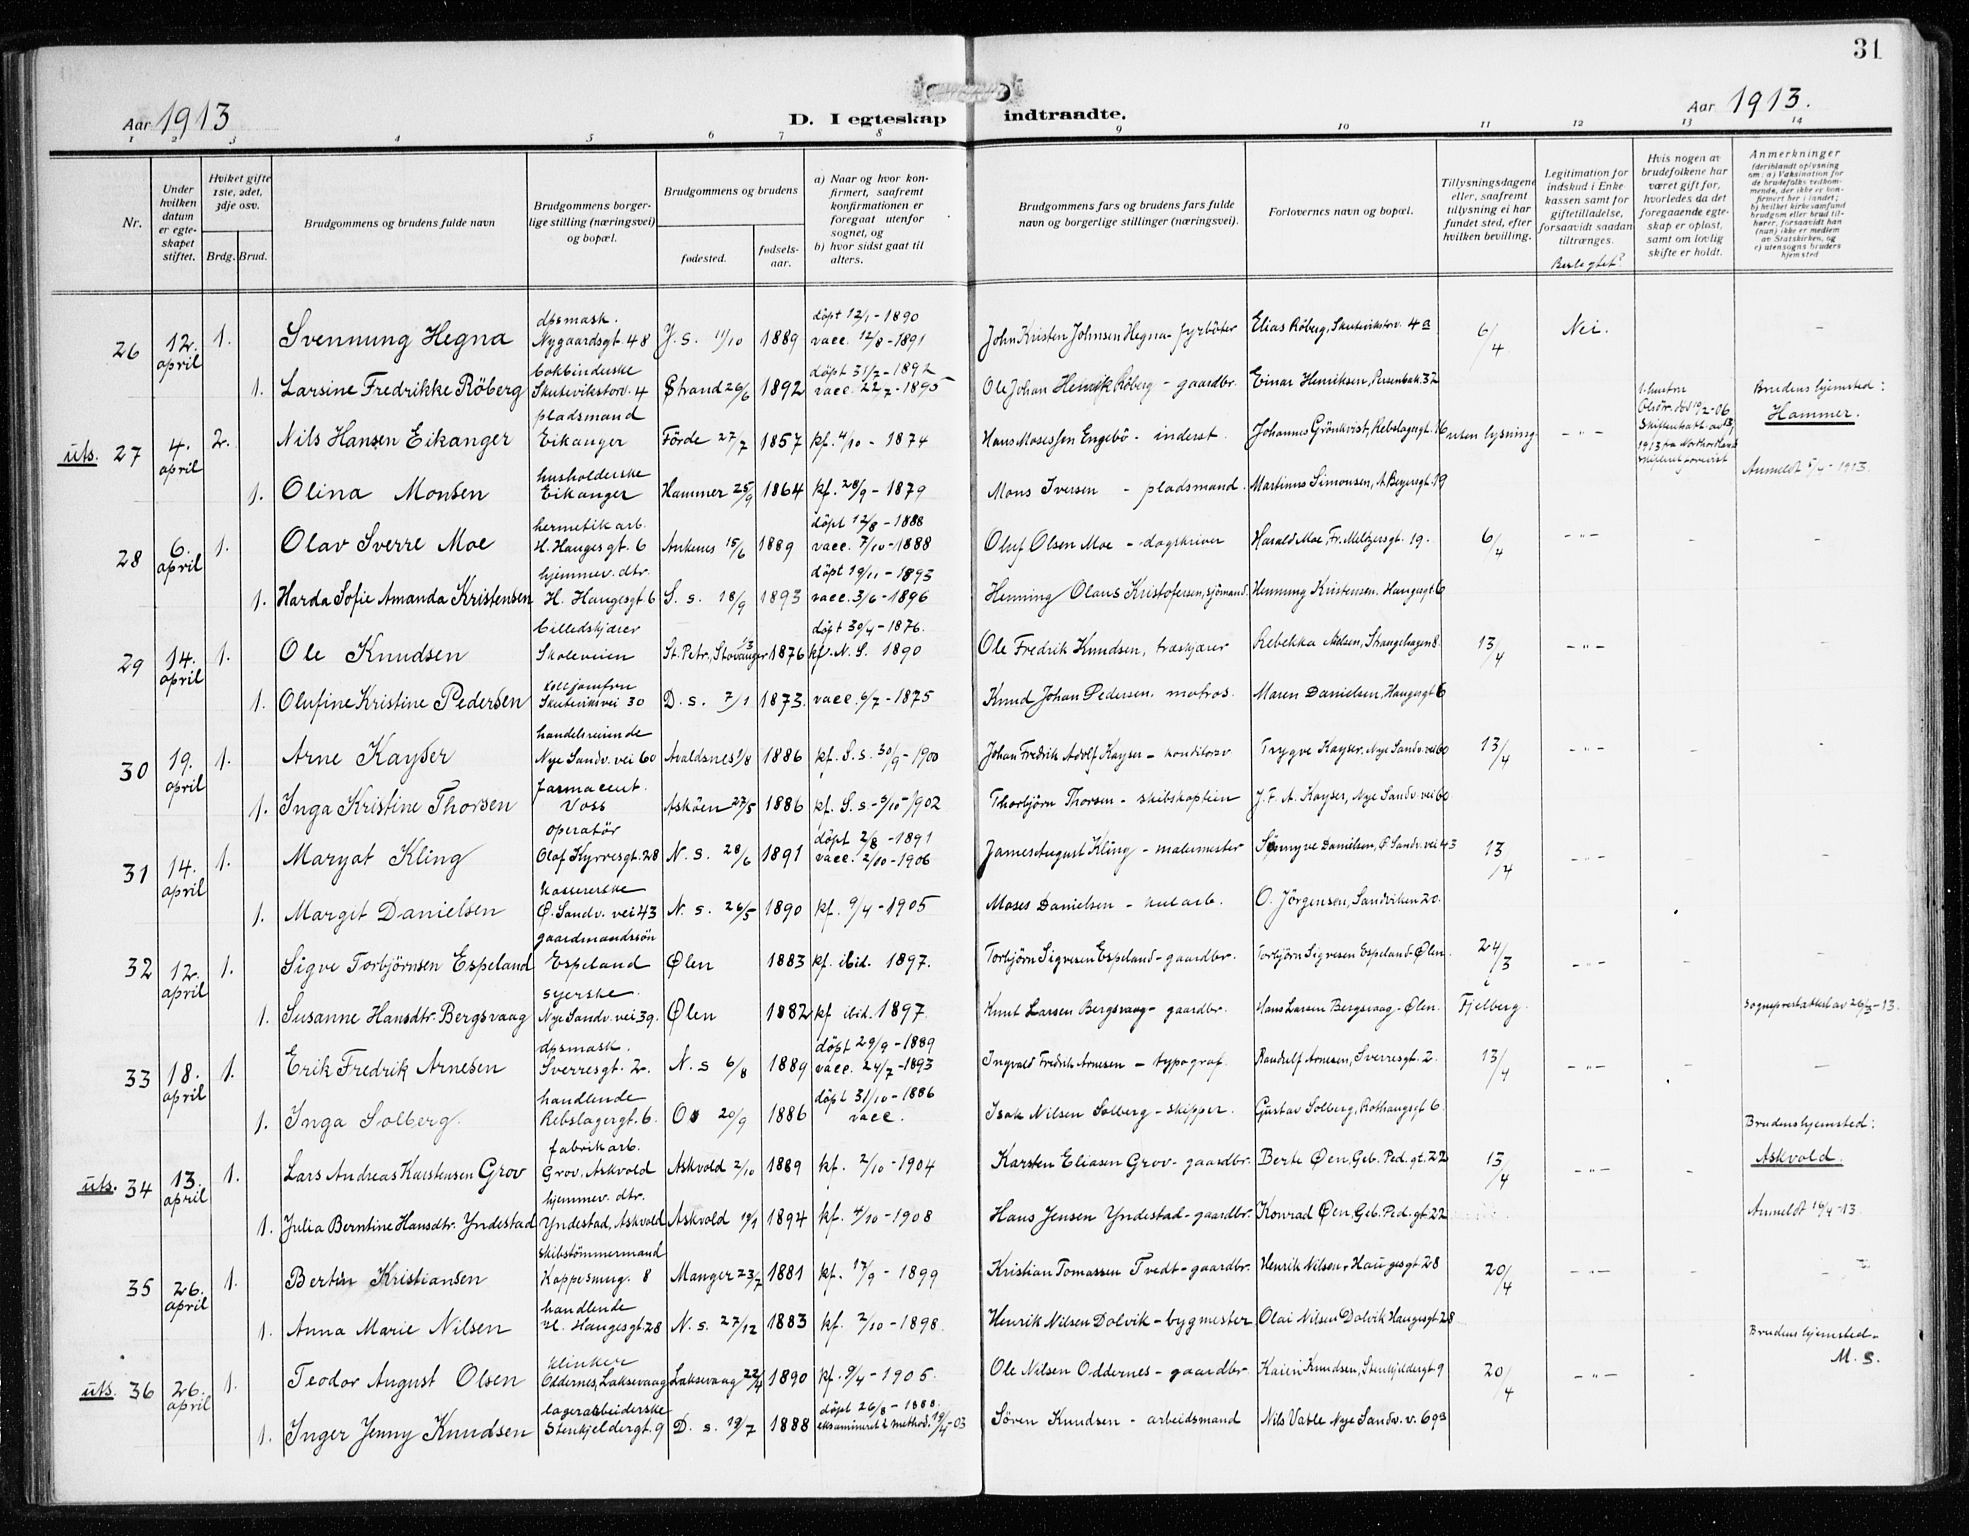 31
Aar 1913
D. I egteskap indtraadte.
Aar 1913.
1 2 3 4 5 6 7 8 9 10 11 12 13 14
Nr.
Under hvilken datum er egteskapet stiftet.
Hviket gifte 1ste, 2det, 3dje osv.
Brdg. Brud.
Brudgommens og brudens fulde navn
Brudgommens borgerlige stilling (næringsvei) og bopæl.
Brudgommens og brudens
fødested.
fødselsaar.
a) Naar og hvor konfirmert, saafremt konfirmationen er foregaat utenfor sognet, og
b) hvor sidst gaat til alters.
Brudgommens fars og brudens fars fulde navn og borgerlige stillinger (næringsvei).
Forlovernes navn og bopæl.
Tillysningsdagene eller, saafremt tillysning ei har fundet sted, efter hvilken bevilling.
Legitimation for indskud i Enkekassen samt for giftetilladelse, forsaavidt saadan tiltrænges.
Beslegtet?
Hvis nogen av brudefolkene har været gift før, hvorledes da det foregaaende egteskap er opløst, samt om lovlig skifte er holdt.
Anmerkninger (deriblandt oplysning om: a) Vaksination for de brudefolks vedkommende, der ikke er konfirmert her i landet; b) hvilket kirkesamfund brudgom eller brud tilhører, forsaavidt han (hun) ikke er medlem av Statskirken, og c) utensogns bruders hjemsted
26 12. april 1. Svennung Hegna dpsmask. Nygaardsgt. 48 J. s. 11/10 1889 døpt 12/1 - 1890 vacc. 12/8 - 1891 John Kristen Johnsen Hegna - fyrbøter Elias Röberg, Skutevikstorv. 4 a 6/4 Nei. -
1. Larsine Fredrikke Röberg bokbinderske Skutevikstorv. 4 Strand 26/6 1892 döpt 31/7 - 1892 vacc. 22/7 - 1895 Ole Johan Henrik Röberg - gaardbr. Einar Henriksen, Persenbak. 32
uts. 27 4. april 2. Nils Hansen Eikanger pladsmand Eikanger Förde 27/7 1857 kf. 4/10 - 1874 Hans Mosessen Engebö - inderst. Johannes Grönkvist, Rebslagergt. 16 uten lysning - " - Brudens hjemsted: Hammer.
1. Olina Monsen husholderske Eikanger Hammer 25/9 1864 kf. 28/9 - 1879 Mons Iversen - pladsmand. Martinus Simonsen, A. Beyersgt. 19 Anmeldt 5/4 - 1913.
28 6. april 1. Olav Sverre Moe hermetikarb. H. Haugesgt. 6 Ankenes 15/6 1889 döpt 12/8 - 1888 vacc. 7/10 - 1888 Oluf Olsen Moe - dagskriver Harald Moe, Fr. Meltzersgt. 19. 6/4 - " - - -
1. Harda Sofie Amanda Kristensen hjemmev. dtr. H. Haugesgt 6 S. s. 18/9 1893 döpt 19/11 - 1893 vacc. 3/6 - 1896 Henning Olaus Kristofersen, sjömand. Henning Kristensen. Haugesgt. 6
29 14. april 1. Ole Knudsen billedskjærer Skoleveien St. Petr., Stavanger 1/3 1876 döpt 30/4 - 1876. kf. N. S. 1890 Ole Fredrik Knudsen, træskjærer Rebekka Nielsen, Strangehagen 8 13/4 - " - - -
1. Olufine Kristine Pedersen Skuteviksvei 30 D. s. 7/1 1873. vacc. 6/7 - 1875 Knud Johan Pedersen. matros. Maren Danielsen, Haugesgt 6
30 19. april 1. Arne Kayser handelsreisende Nye Sandv. vei 60 Avaldsnes 1/8 1886 kf. S. s. 30/9 - 1900 Johan Fredrik Adolf Kayser - konditor Trygve Kayser, Nye Sandv. vei 60 13/4 - " - - -
1. Inga Kristine Thorsen farmaceut. Voss Asköen 27/5 1886 kf. S. s. - 5/10 - 1902 Thorbjörn Thorsen - skibskaptein J. F. A. Kayser, Nye Sandv. vei 60
31 14. april 1. Maryat Kling operatör Olaf Kyrresgt. 28 N. s. 28/6 1891 döpt 2/8 - 1891 vacc. 2/10 - 1906 James August Kling - malermester Synnyve Danielsen, Ø. Sandv. vei 43 13/4 - " - -
1. Margit Danielsen kassererske Ø. Sandv. vei 43 N. s. 26/5 1890 kf. 9/4 - 1905 Moses Danielsen - kularb. O. Jörgensen, Sandviken 20.
32 12. april 1. Sigve Torbjörnsen Espeland gaardmandssön Espeland Ølen 1883 kf. ibid. 1897. Torbjörn Sigvesen Espeland - gaardbr. Torbjörn Sigvesen Espeland - Ølen 24/3 i Fjelberg. - " - - -
1. Susanne Hansdtr. Bergsvaag syerske. Nye Sandv. vei 39. Ølen 1882 kf ibid. 1897. Knut Larsen Bergsvaag - gaardbr. Hans Larsen Bergsvaag - Ølen. Sogneprestattest av 26/3 - 13.
33 18. april 1. Erik Fredrik Arnesen dpsmask. Sverresgt. 2. N. s 6/8 1889 döpt 29/9 - 1889 vacc. 24/7 - 1893 Ingvald Fredrik Arnesen - typograf. Randulf Arnesen, Sverresgt. 2. 13/4 - " - - -
1. Inga Solberg. handlende Rebslagergt. 6. Os 20/9 1886 döpt 31/10 - 1886 vacc. Isak Nilsen Solberg - skipper. Gustav Solberg, Rothaugsgt 6.
uts. 34 13. april 1. Lars Andreas Karstensen Grov fabrikarb. Grov, Askvold Askvold 2/10 1889 kf. 2/10 - 1904 Karsten Eliasen Grov - gaardbr. Berte Øen, Geb. Ped. gt. 22 13/4 - " - - Brudens hjemsted: Askvold.
1. Julia Berntine Hansdtr. Yndestad hjemmev. dtr. Yndestad, Askvold Askvold 19/1 1894 kf. 4/10 - 1908 Hans Jensen Yndestad - gaardbr. Konrad Øen, Geb. Ped. gt. 22 Anmeldt 16/4 - 13.
35 26. april 1. Bertin Kristiansen skibstömmermand Koppesmug. 8 Manger 23/7 1881 kf. 17/9 - 1899 Kristian Tomassen Tvedt - gaardbr. Henrik Nilsen, Haugesgt 28 20/4 - " - - -
1. Anna Marie Nilsen handlende H. Haugesgt 28 N. s. 27/12 1883 kf. 2/10 - 1898. Henrik Nilsen Dolvik - bygmester Olai Nilsen Dolvik Haugesgt. 28
uts. 36 26. april 1. Teodor August Olsen klinker Oddernes, Laksevaag Laksevaag 22/4 1890 kf. 9/4 - 1905. Ole Nilsen Oddernes - gaardbr. Knudsen, Stenkjeldergt. 9 20/4 - " - - Brudens hjemsted - M. s.
1. Inger Jenny Knudsen lagerarbeiderske Stenkjeldergt. 9 D. s. 19/7 1888 döpt 26/8 - 1888. Sören Knudsen - arbeidsmand Nils Vatle Nye Sandv. v. 69 a